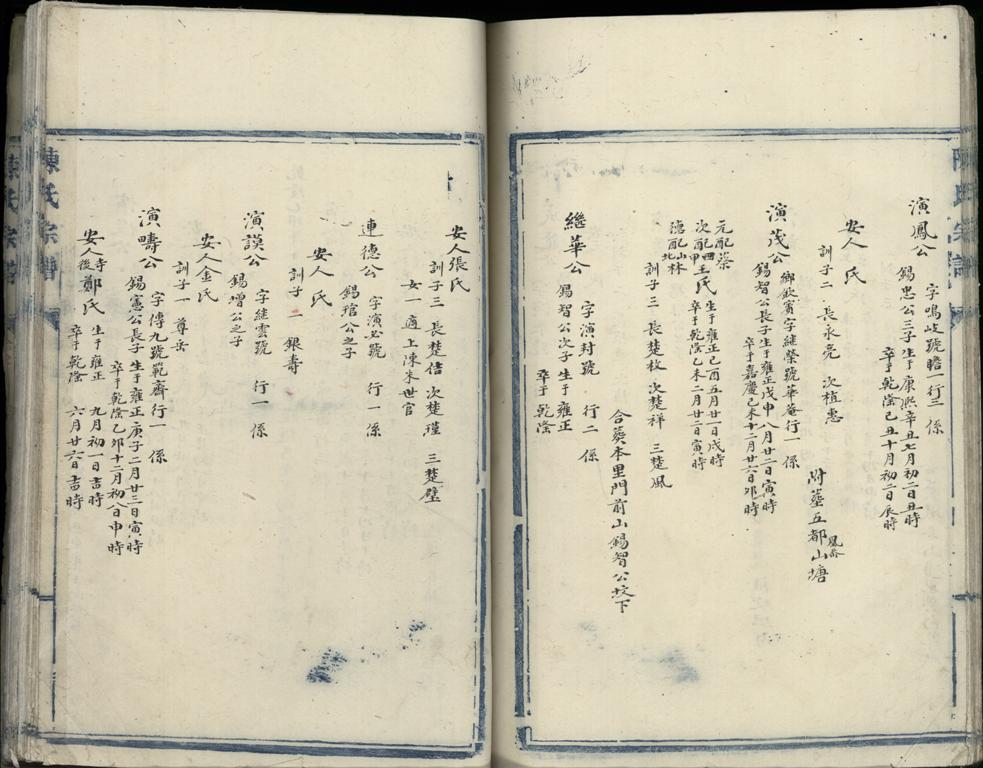 演鳳公
字鳴岐號瞻一行三 係
錫忠公三子生于康熙辛丑七月初二日丑時
卒于乾隆己丑十月初二日辰時
安人 氏
訓子二 長永亮 次植惠
附塟五都鳳岙山塘
演茂公
鄉飲賓字繼榮號華菴行一 係
錫智公長子生于雍正戊申八月廿二日寅時
卒于嘉慶己未十二月廿六日卯時
元配柴
次配西甲王氏
生于雍正己酉五月廿一日戌時
卒于乾隆乙未二月廿二日寅時
德配山北林
訓子三 長楚枚 次楚祥 三楚風
合塟本里門前山錫智公坟下
繼華公
字演封號 行二 係
錫智公次子生于雍正
卒于乾隆
安人張氏
訓子三 長楚佶 次楚瑾 三楚璧
女一 適上陳朱世官
連德公
字演必號 行一 係
錫琯公之子
安人 氏
訓子 一 銀壽
演謨公
字繼雲號 行一 係
錫增公之子
安人金氏
訓子一 尊岳
演疇公
字傳九號範齋行一 係
錫憲公長子生于雍正庚子二月廿三日寅時
卒于乾隆乙卯十二月初八日申時
安人寺後鄭氏
生于雍正 九月初一日吉時
卒于乾隆 六月廿六日吉時
陳氏宗譜